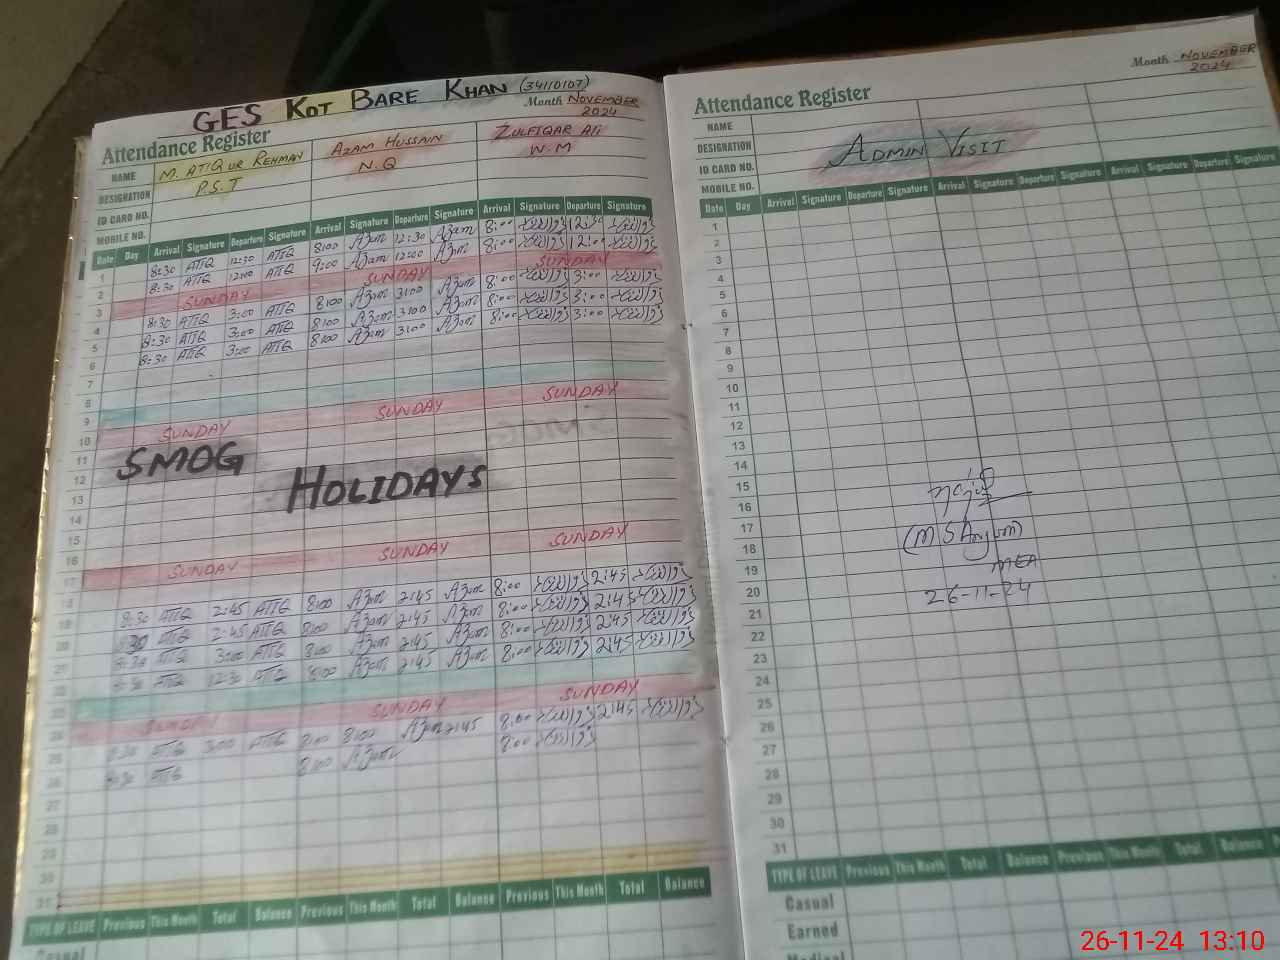 GES KOT BARE KHAN (34110107)
Attendance Register
Month NOVEMBER 2024
NAME M. ATIQ UR REHMAN AZAM HUSSAIN ZULFIQAR ALI
DESIGNATION P.S.T N.Q W.M
ID CARD NO.
MOBILE NO.
Date Day Arrival Signature Departure Signature Arrival Signature Departure Signature Arrival Signature Departure Signature
1 8:30 ATIQ 12:30 ATIQ 8:00 Azam 12:30 Azam 8:00 12:30
2 8:30 ATIQ 12:00 ATIQ 9:00 Azam 12:00 Azam 8:00 12:00
3 SUNDAY SUNDAY SUNDAY
4 8:30 ATIQ 3:00 ATIQ 8:00 Azam 3:00 Azam 8:00 3:00
5 8:30 ATIQ 3:00 ATIQ 8:00 Azam 3:00 Azam 8:00 3:00
6 8:30 ATIQ 3:00 ATIQ 8:00 Azam 3:00 Azam 8:00 3:00
7
8
9
10 SUNDAY SUNDAY SUNDAY
11 SMOG
12 HOLIDAYS
13
14
15
16
17 SUNDAY SUNDAY SUNDAY
18
19 8:30 ATIQ 2:45 ATIQ 8:00 Azam 2:45 Azam 8:00 2:45
20 8:30 ATIQ 2:45 ATIQ 8:00 Azam 2:45 Azam 8:00 2:45
21 8:30 ATIQ 3:00 ATIQ 8:00 Azam 2:45 Azam 8:00 2:45
22 8:30 ATIQ 12:30 ATIQ 8:00 Azam 2:45 Azam 8:00 2:45
23
24 SUNDAY SUNDAY SUNDAY
25 8:30 ATIQ 3:00 ATIQ 8:00 8:00 Azam 2:45 8:00 2:45
26 8:30 ATIQ 8:00 Azam 8:00
27
28
29
30
31
TYPE OF LEAVE Previous This Month Total Balance Previous This Month Total Balance Previous This Month Total Balance
Casual
Month NOVEMBER 2024
Attendance Register
NAME
DESIGNATION ADMIN VISIT
ID CARD NO.
MOBILE NO.
Date Day Arrival Signature Departure Signature Arrival Signature Departure Signature Arrival Signature Departure Signature
1
2
3
4
5
6
7
8
9
10
11
12
13
14
15
16
17
18
19
20
21
22
23
24
25
26
27
28
29
30
31
(M S Anjum)
MEA
26-11-24
TYPE OF LEAVE Previous This Month Total Balance Previous This Month Total Balance
Casual
Earned
Medical
26-11-24 13:10